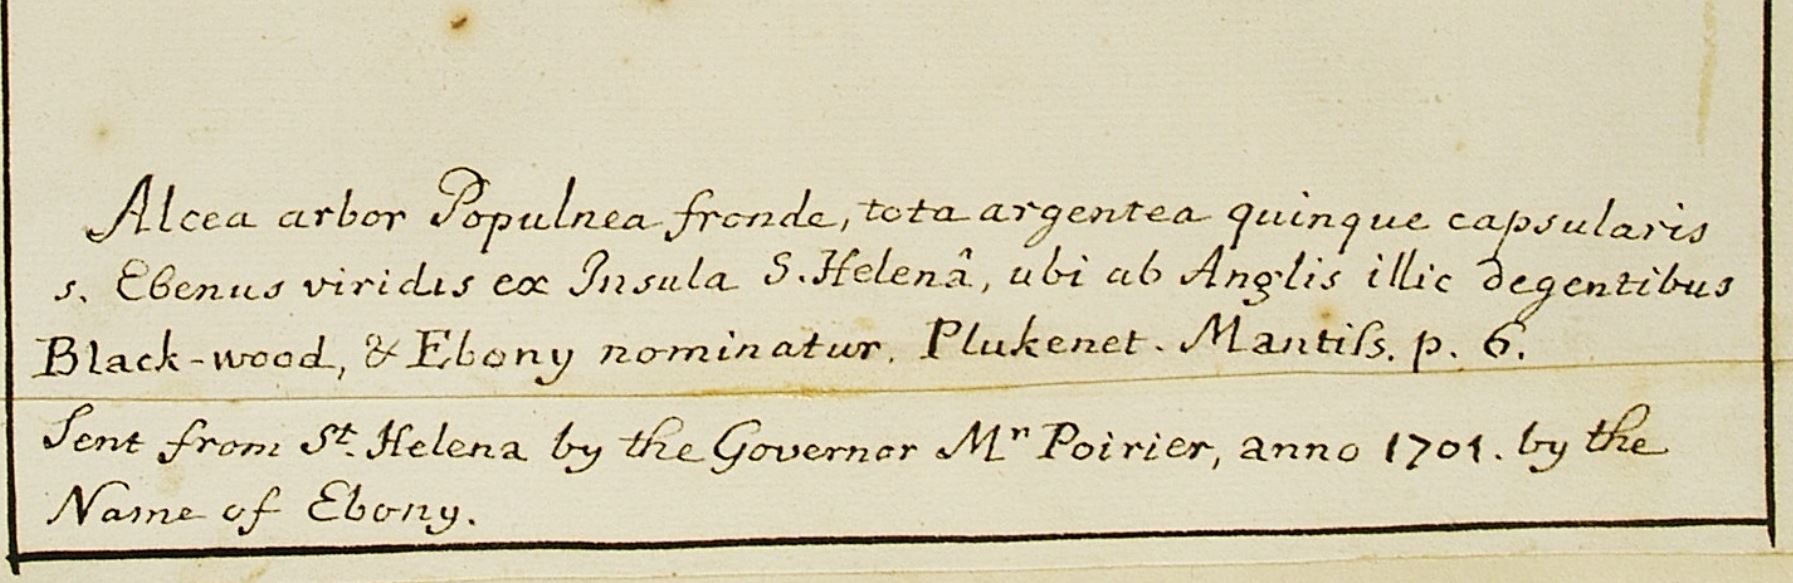 Alcea arbor Populnea fronde, tota argentea quinque capsularis
s. Ebenus viridis ex Insula S. Helenâ, ubi ab Anglis illic degentibus
Black-wood, & Ebony nominatur. Plukenet. Mantiſs. p. 6.
Sent from St. Helena by the Governor Mr Poirier, anno 1701. by the
Name of Ebony.